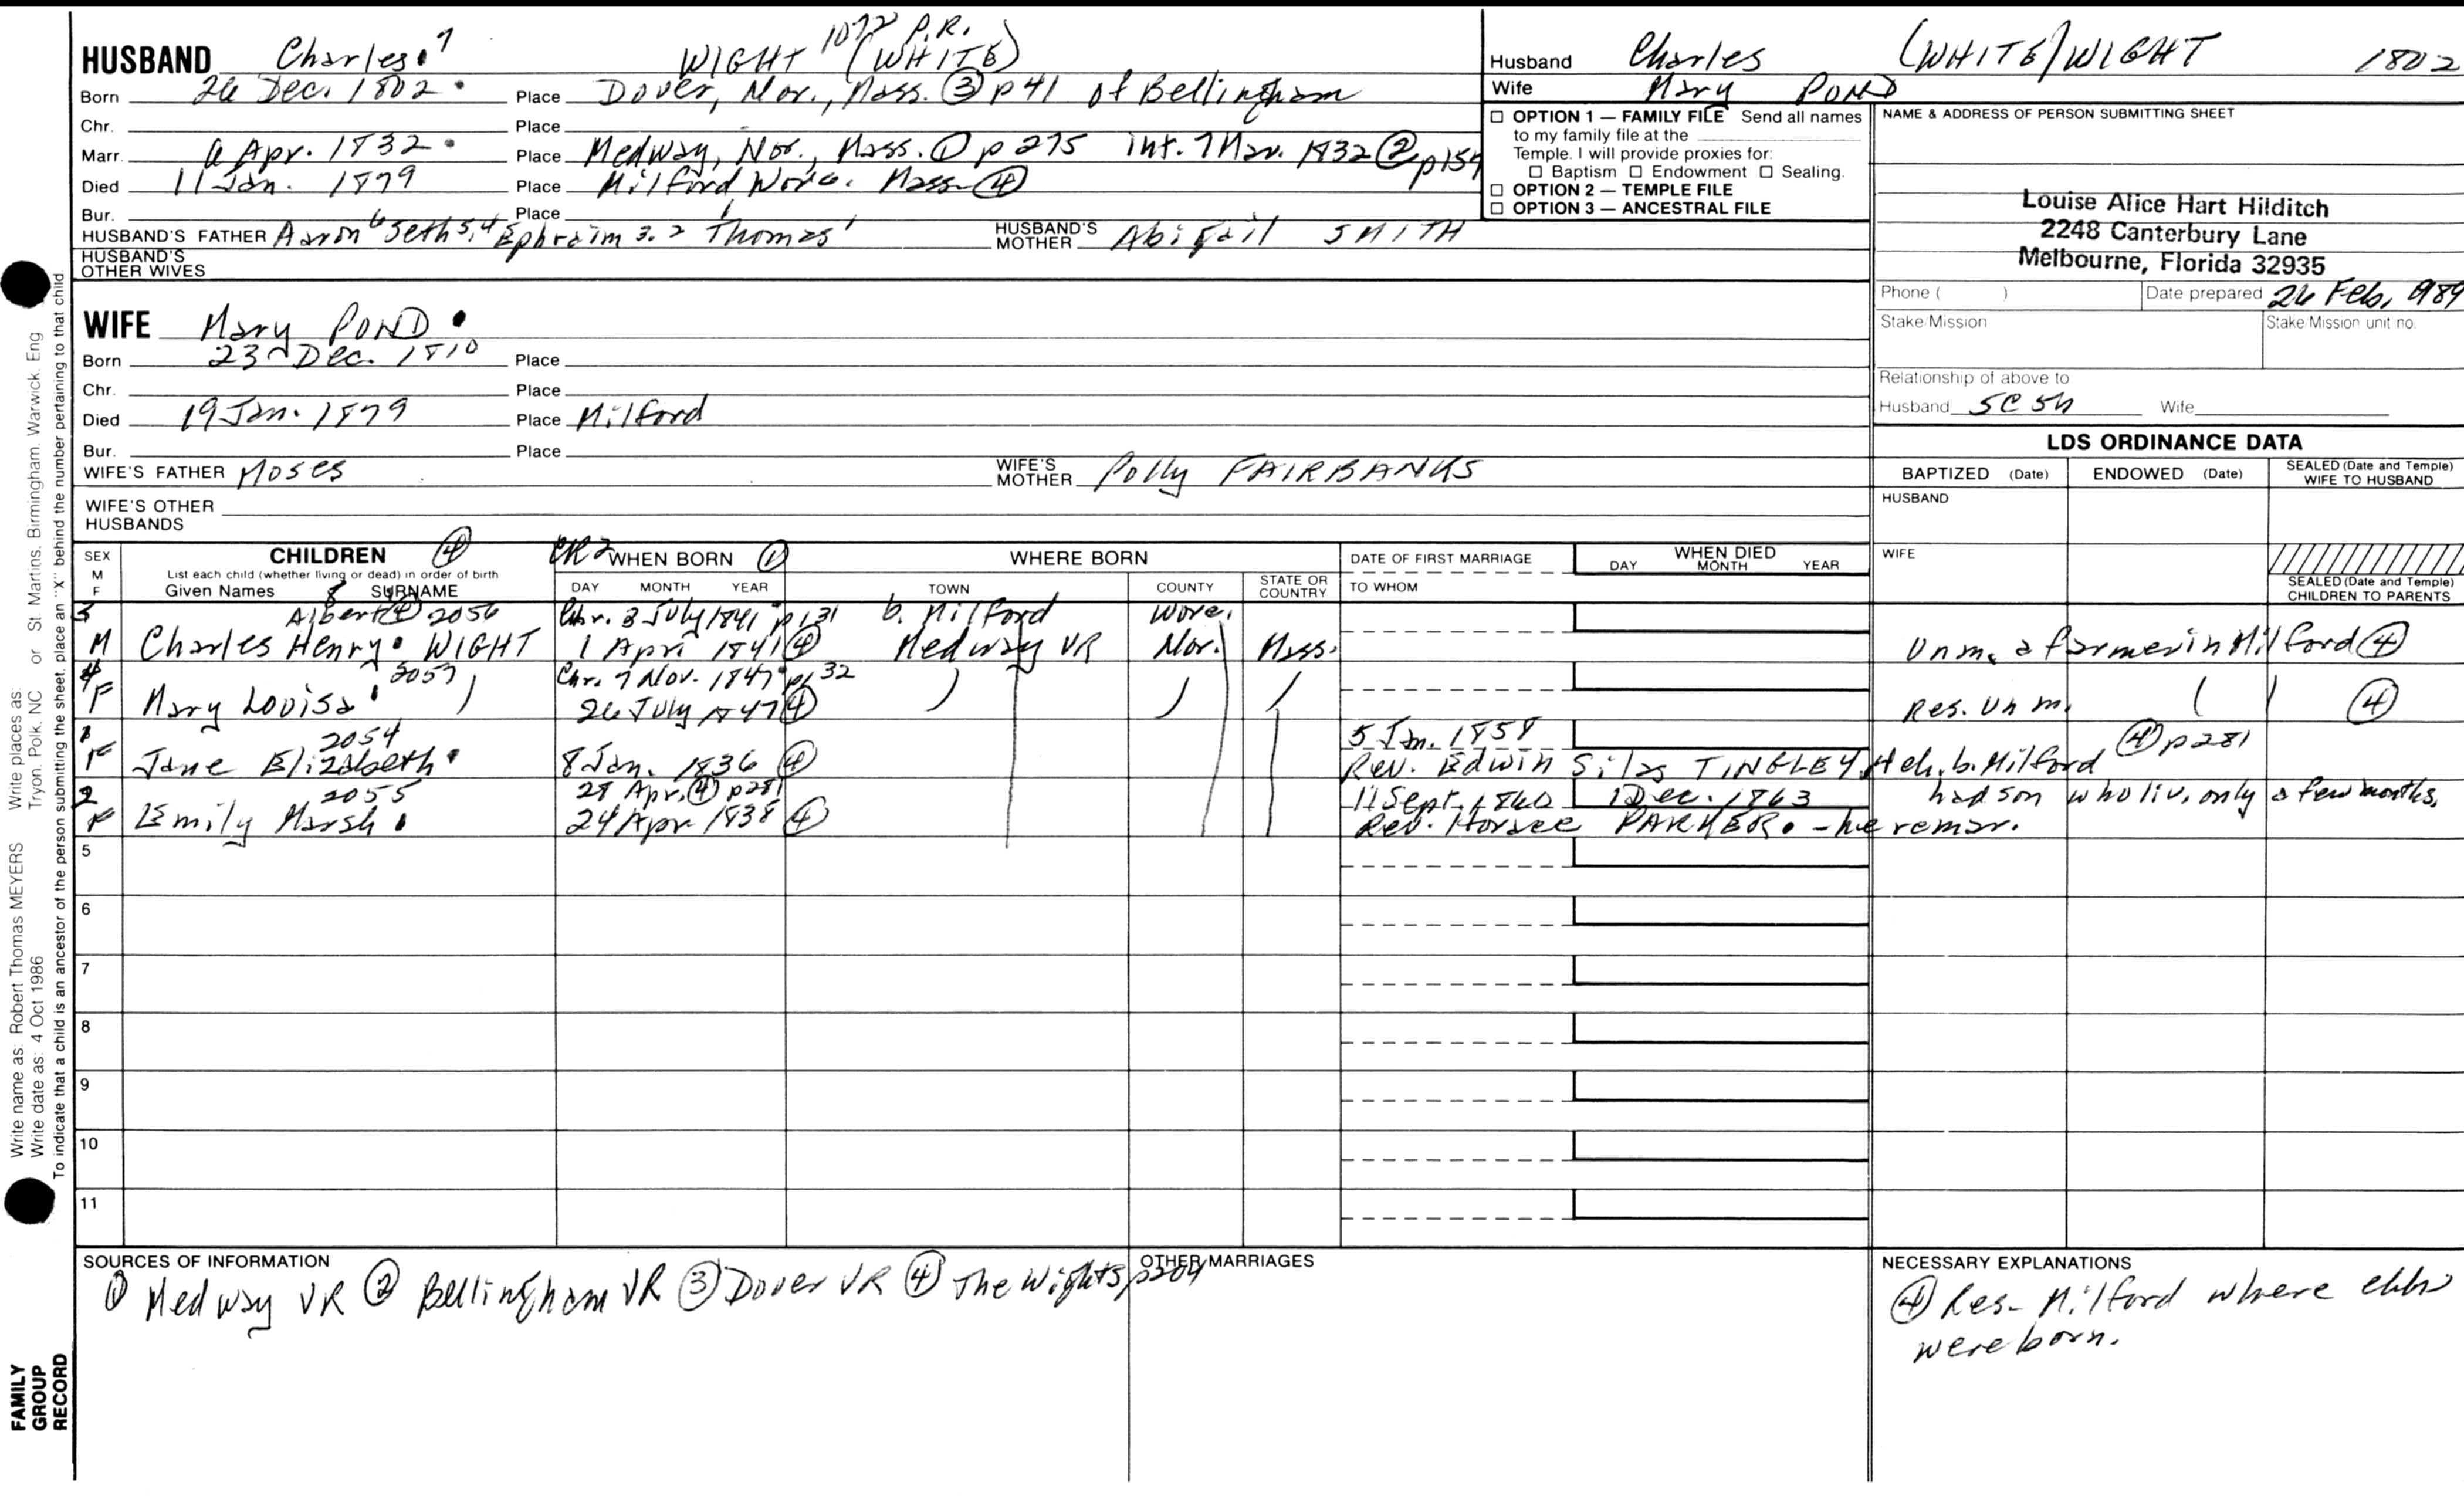 1072 P.R.
HUSBAND Charles 7 WIGHT (WHITE)
Born 26 Dec. 1802 Place Dover, Nor., Mass. ③ p41 of Bellingham
Chr. Place
Marr. a Apr. 1832 Place Medway, Nor., Mass. ① p275 int. 7 Mar. 1832 ② p154
Died 11 Jan. 1879 Place Milford Worc. Mass. ④
Bur. Place
HUSBAND'S FATHER Aaron 6 Seth 5,4 Ephraim 3,2 Thomas 1 HUSBAND'S MOTHER Abigail SMITH
HUSBAND'S OTHER WIVES
WIFE Mary POND
Born 23 Dec. 1810 Place
Chr. Place
Died 19 Jan. 1879 Place Milford
Bur. Place
WIFE'S FATHER Moses WIFE'S MOTHER Polly FAIRBANKS
WIFE'S OTHER HUSBANDS
Husband Charles (WHITE) WIGHT 1802
Wife Mary POND
☐ OPTION 1 — FAMILY FILE Send all names
to my family file at the
Temple. I will provide proxies for:
☐ Baptism ☐ Endowment ☐ Sealing.
☐ OPTION 2 — TEMPLE FILE
☐ OPTION 3 — ANCESTRAL FILE
NAME & ADDRESS OF PERSON SUBMITTING SHEET
Louise Alice Hart Hilditch
2248 Canterbury Lane
Melbourne, Florida 32935
Phone ( ) Date prepared 26 Feb, 1989
Stake/Mission Stake/Mission unit no.
Relationship of above to
Husband 5C5h Wife
LDS ORDINANCE DATA
BAPTIZED (Date) ENDOWED (Date) SEALED (Date and Temple) WIFE TO HUSBAND
HUSBAND
WIFE
SEALED (Date and Temple) CHILDREN TO PARENTS
SEX M F CHILDREN ④ CR2 WHEN BORN ① WHERE BORN DATE OF FIRST MARRIAGE WHEN DIED
List each child (whether living or dead) in order of birth
Given Names 8 SURNAME DAY MONTH YEAR TOWN COUNTY STATE OR COUNTRY TO WHOM DAY MONTH YEAR
3 Albert ④ 2056 Chr. 3 July 1841 p131 b. Milford Worc.
M Charles Henry WIGHT 1 Apri 1841 ④ Medway VR Nor. Mass. Unm. a farmer in Milford ④
4 2057 Chr. 7 Nov. 1847 p132
F Mary Louisa 26 July 1847 ④ Res. Unm. ④
1 2054 5 Jan. 1858
F Jane Elizabeth 8 Jan. 1836 ④ Rev. Edwin Silas TINGLEY 4 ch. b. Milford ④ p281
2 2055 28 Apr. ④ p281 11 Sept. 1860 1 Dec. 1863 had son who liv. only a few months,
F Emily Marsh 24 Apr 1838 ④ Rev. Horace PARKER. - he remar.
5
6
7
8
9
10
11
SOURCES OF INFORMATION
① Medway VR ② Bellingham VR ③ Dover VR ④ The Wights p204
OTHER MARRIAGES
NECESSARY EXPLANATIONS
④ Res. Milford where
were born.
Write name as: Robert Thomas MEYERS Write places as: Tryon, Polk, NC or St Martins, Birmingham, Warwick, Eng
Write date as: 4 Oct 1986
To indicate that a child is an ancestor of the person submitting the sheet, place an "X" behind the number pertaining to that child
FAMILY
GROUP
RECORD